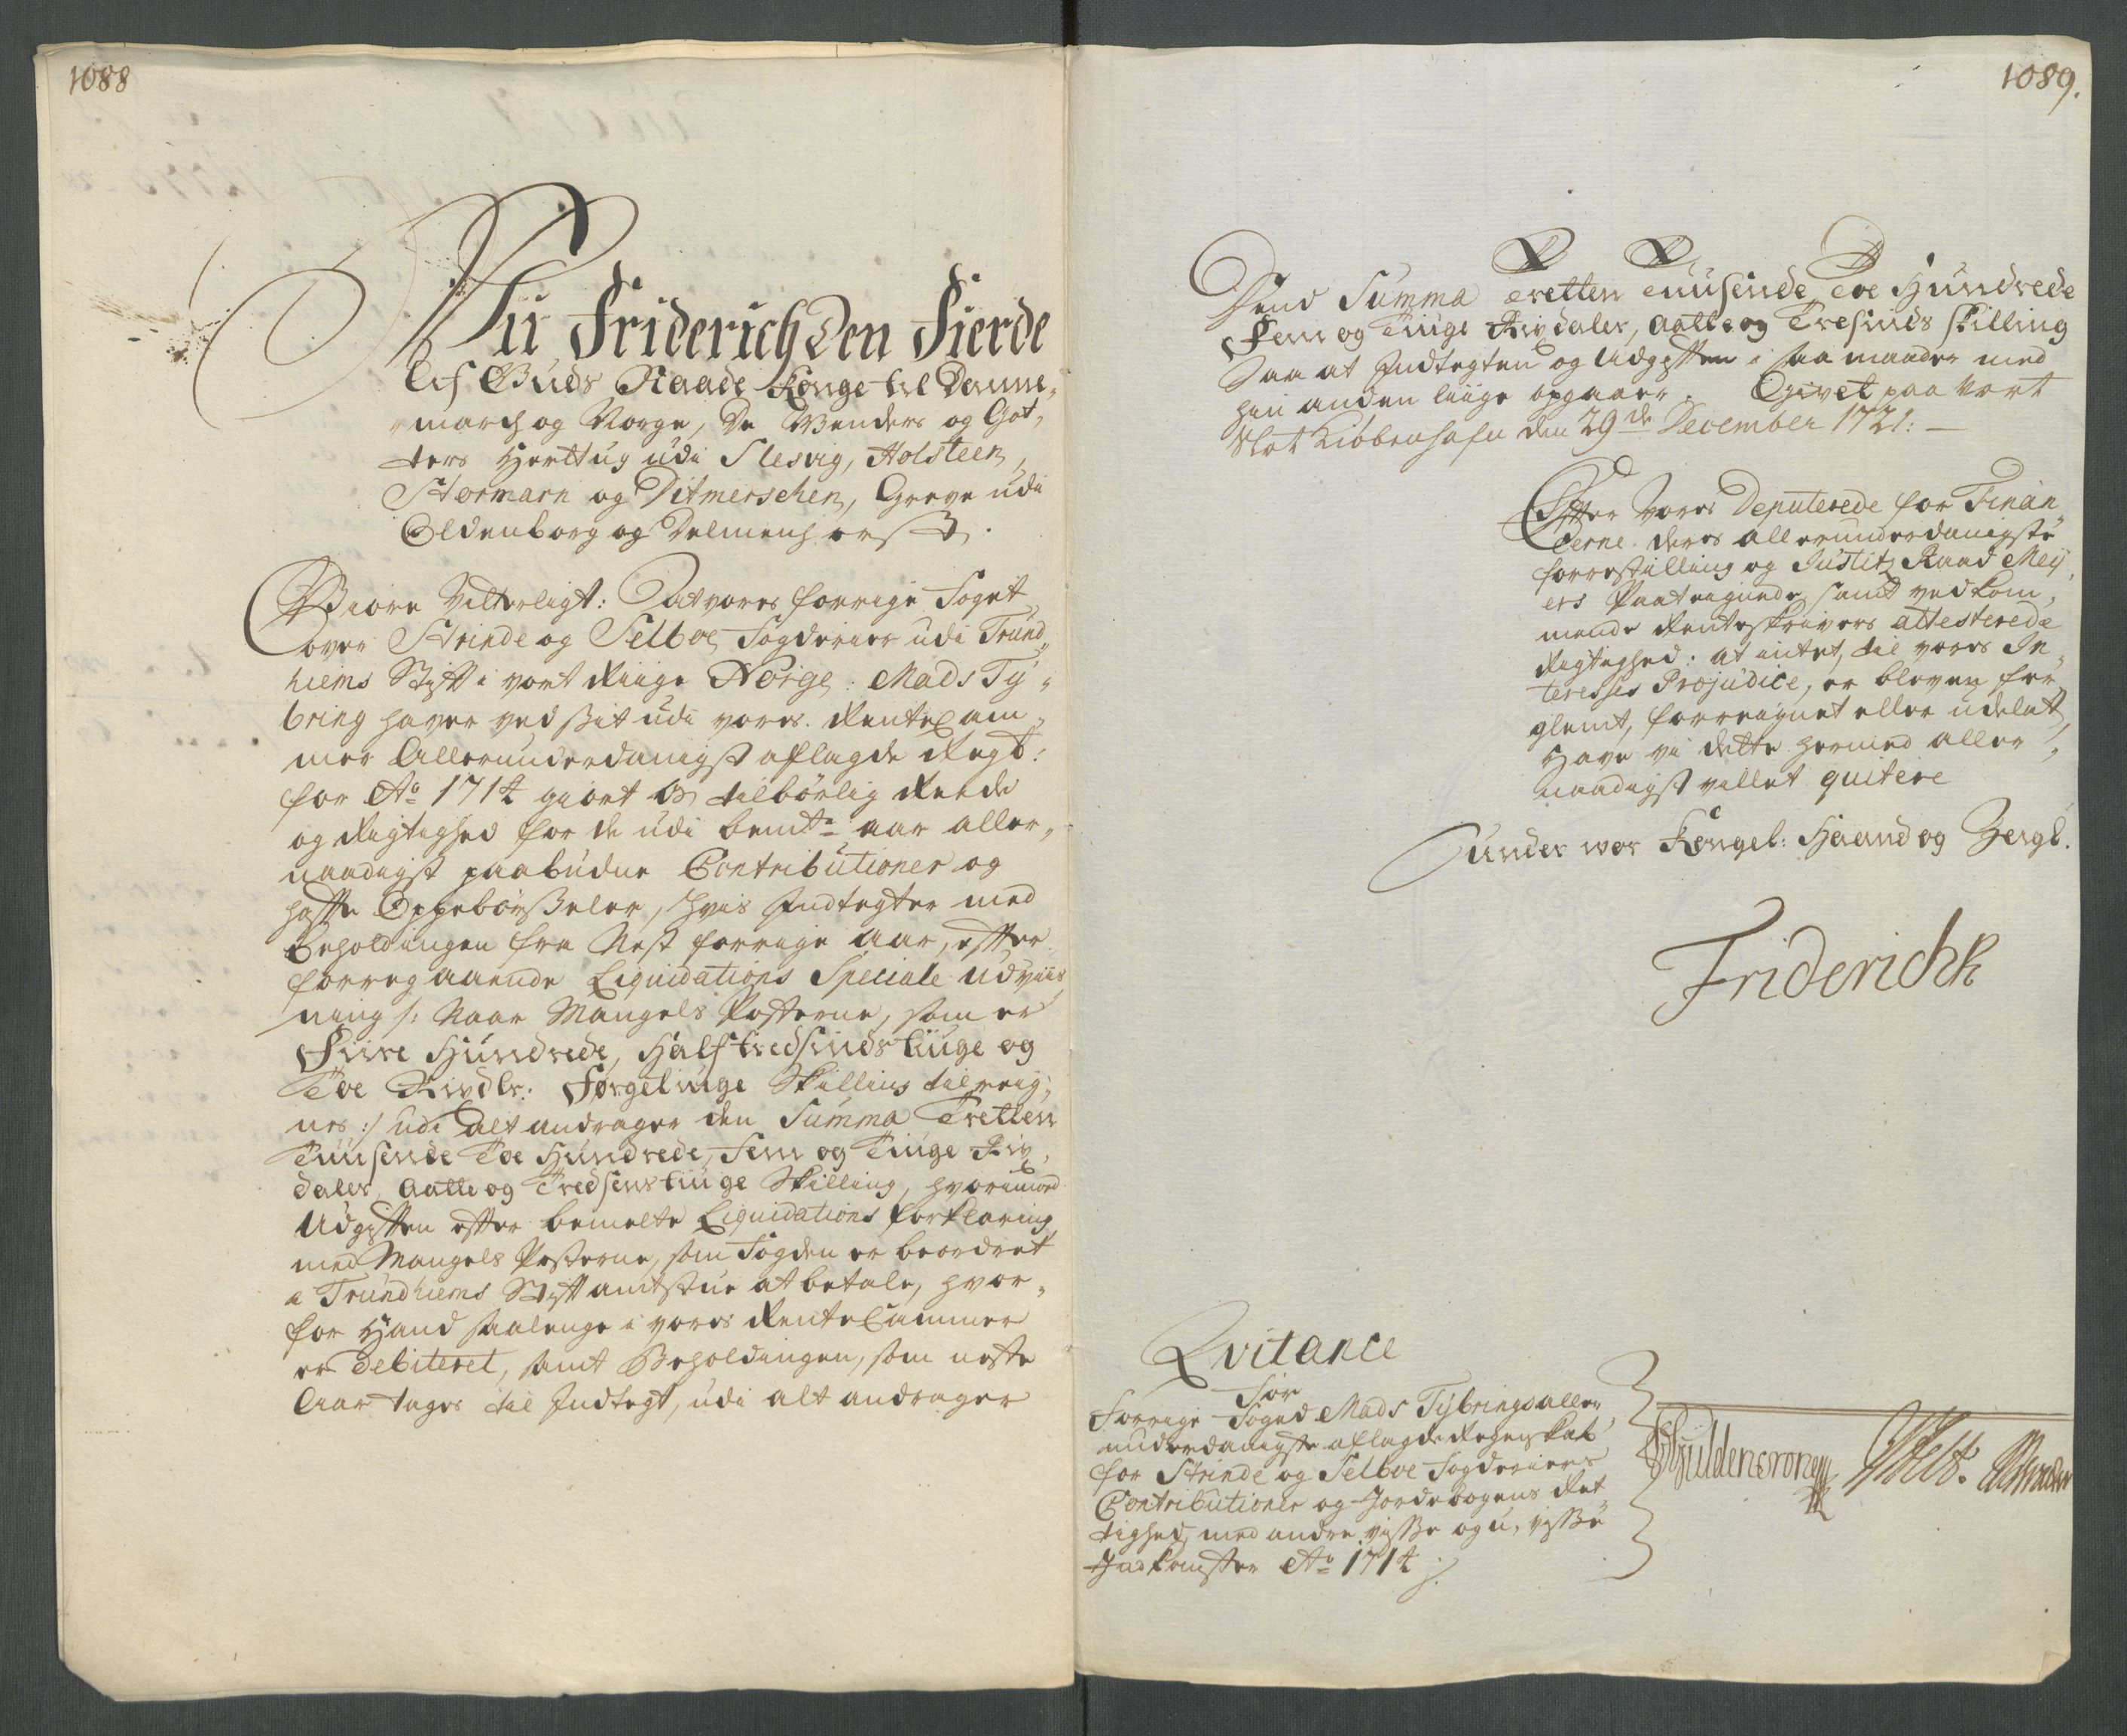 1088
Wii Friderich den Fierde
Af Guds Naade Konge til Danne-
march og Norge, De Wenders og Got-
ters Herttug udi Slesvig, Holsteen,
Stormarn og Ditmerschen, Greve udi
Oldenborg og Delmenhorst.
Giøre Vitterligt: At vores forrige Foget
over Strinde og Selboe Fogderier udi Trund-
hiems Stift i vort Riige Norge: Mads Ty-
bring haver ved sit udi vores RenteCam-
mer Allerunderdanigst aflagde Regb:
for Ao 1714 giort os tilbörlig Rede
og Rigtighed for de udi bemte aar aller-
naadigst paabudne Contributioner og
hafte Oppebörseler, hvis Indtegter med
Beholdingen fra Nest forrige aar, efter
forregaaende Liquidations Speciale udviis-
ning /: Naar Mangels Posterne, som er
Fiire Hundrede, Halftredsindstiuge og
Toe Rixdlr: Förgetiuge Skilling tilreig-
nes :/ udi alt andrager den Summa Tretten
Tuusende Toe Hundrede, Fem og Tiuge Rix-
daler, Aatte og Tredsenstiuge Skilling, hvorimod
Udgiften efter bemelte Liquidations forklaring
med Mangels Posterne, som Fogden er beordret
i Trundhiems Stift amtstue at betale, hvor-
for Hand saalenge i vores RenteCammer
er debiteret, samt Beholdingen, som neste
Aar tages til Indtegt, udi alt andrager
1089.
Summa Tretten Tuusende Toe Hundrede
Fem og Tiuge Rixdaler, Aatte og Tresinds skilling
Saa at Indtegten og Udgiften i saa maader med
hin anden liige opgaaer. Givet paa Vort
Slot Kiöbenhafn den 29de December 1721:
Efter Vores Deputerede for Finan-
cerne deres allerunderdanigste
forrestilling og Justitz Raad Meij-
ers Paategnede, samt vedkom-
mende Renteskrivers attesterede
Rigtighed: at intet, til vores In-
teresses Præjudice, er bleven for-
glemt, forreignet eller udelat,
Have vi dette hermed aller-
naadigst villet quitere
Under vor Kongel: Haand og Zergl.
Friderich R
Qvitance
For
Forrige Foged Mads Tybrings aller-
underdanigste aflagde Regenskab
for Strinde og Selboe Fogderiers
Contributioner og Jordebogens Ret-
tighed, med andre visse og u-visse
Indkomster Ao 1714